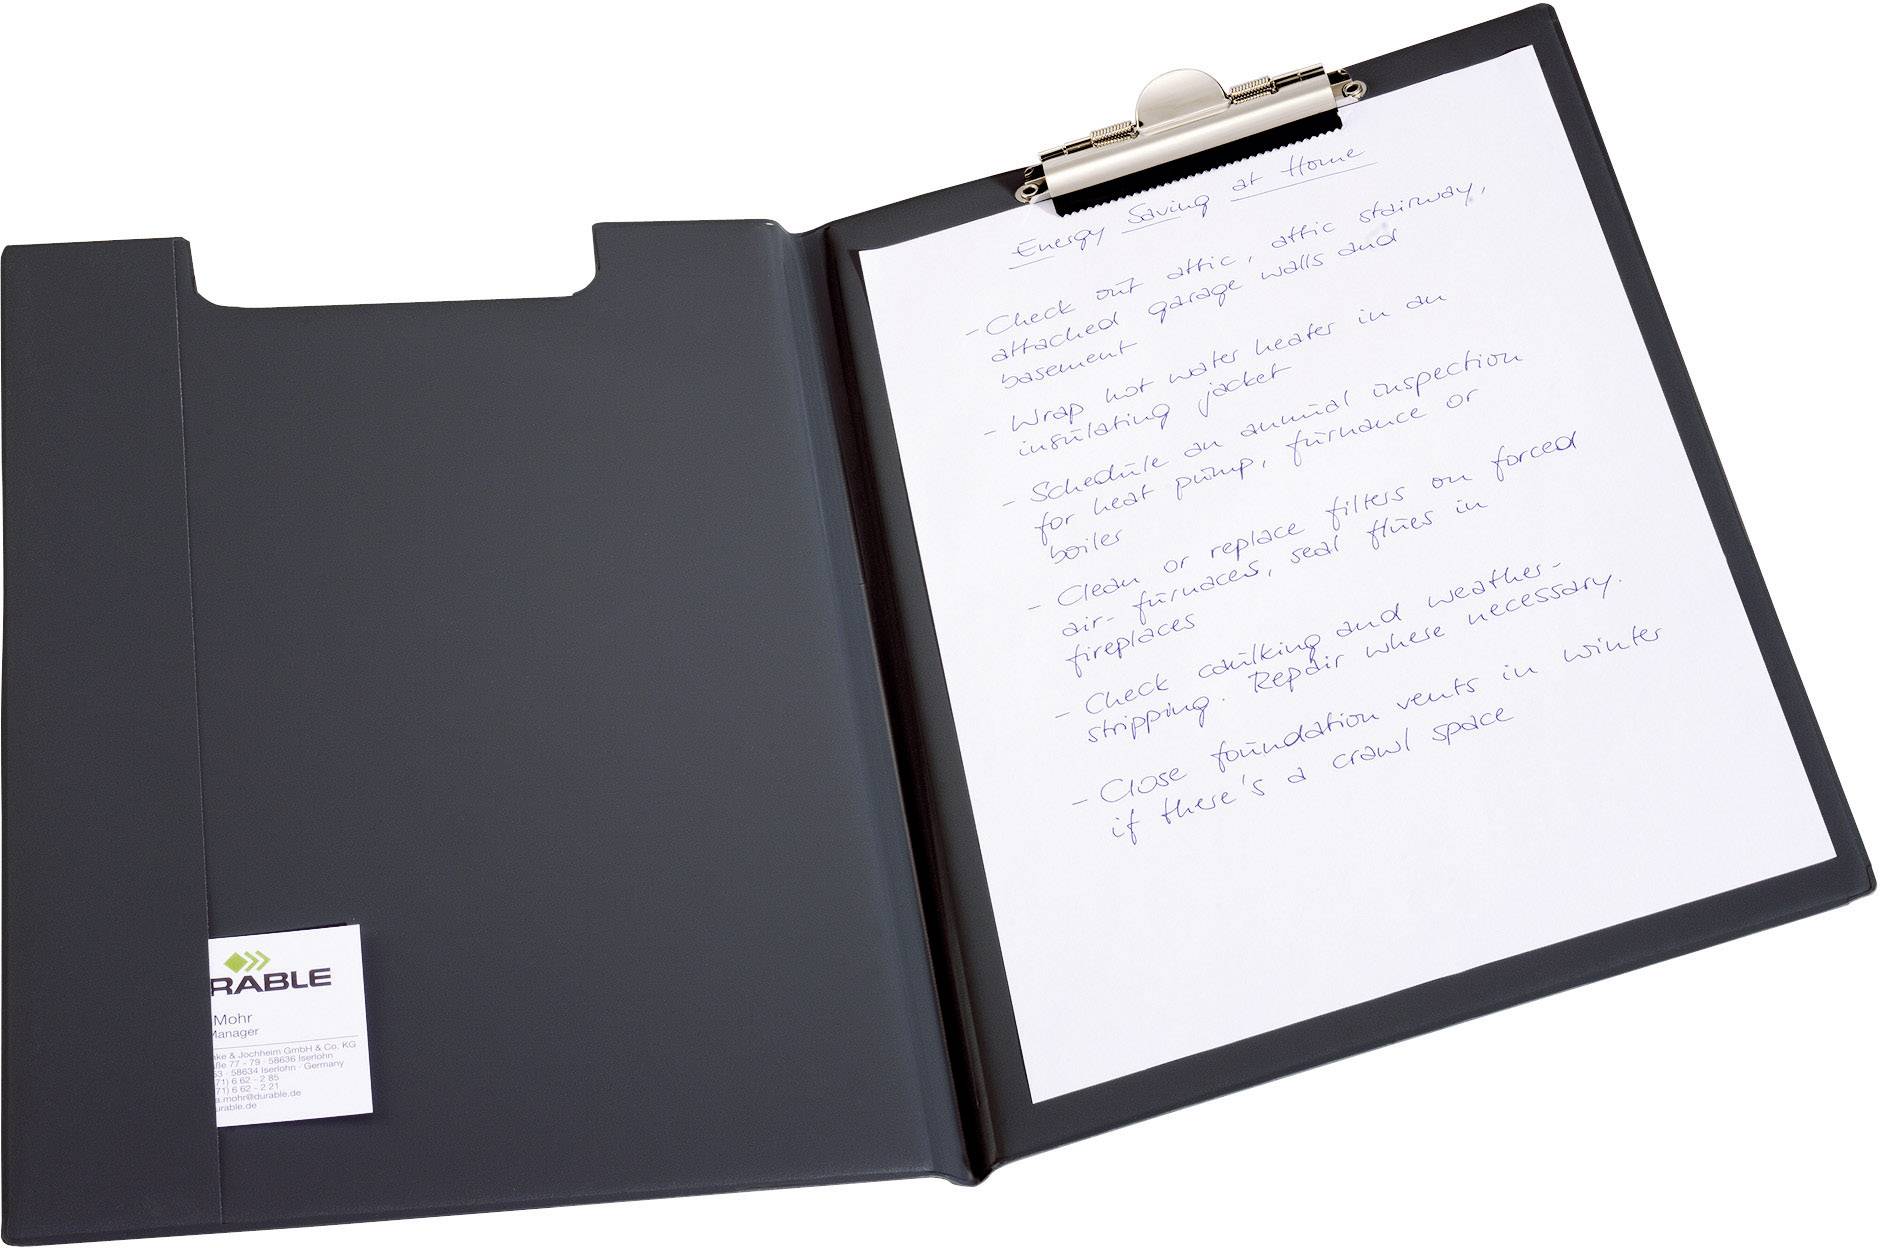 RABLE
Mohr
Manager
ke & Jochheim GmbH & Co. KG
ße 77 - 79 · 58636 Iserlohn
53 · 58634 Iserlohn · Germany
71) 6 62 - 2 85
71) 6 62 - 2 21
a.mohr@durable.de
urable.de
Energy Saving at Home
- Check out attic, attic stairway,
attached garage walls and
basement
- Wrap hot water heater in an
insulating jacket
- Schedule an annual inspection
for heat pump, furnance or
boiler
- Clean or replace filters on forced
air- furnaces, seal flues in
fireplaces
- Check caulking and weather-
stripping. Repair where necessary.
- Close foundation vents in winter
if there's a crawl space